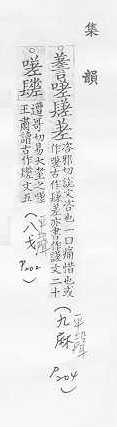 集韻
嗟 差 咨邪切說文咨也一曰痛惜也或
作 古作 差亦書作 文二十
平聲
(九麻)
P204
嗟 遭哥切易大耋之嗟
王肅讀古作 文五
平聲
(八戈)
P202